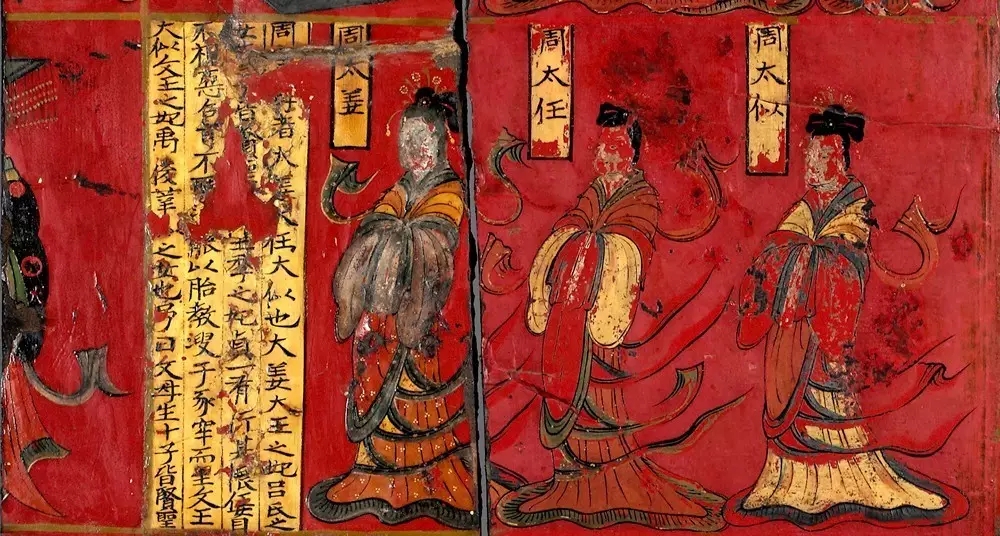 周太似
周太任
周太姜
周 者大姜大任大似也大姜大王之妃呂氏之
王季之妃貞一有行其 任自
惡色 不 以胎教溲于豕牢而生文王
大似文王之妃禹後莘之女也号曰文母生十子皆賢聖